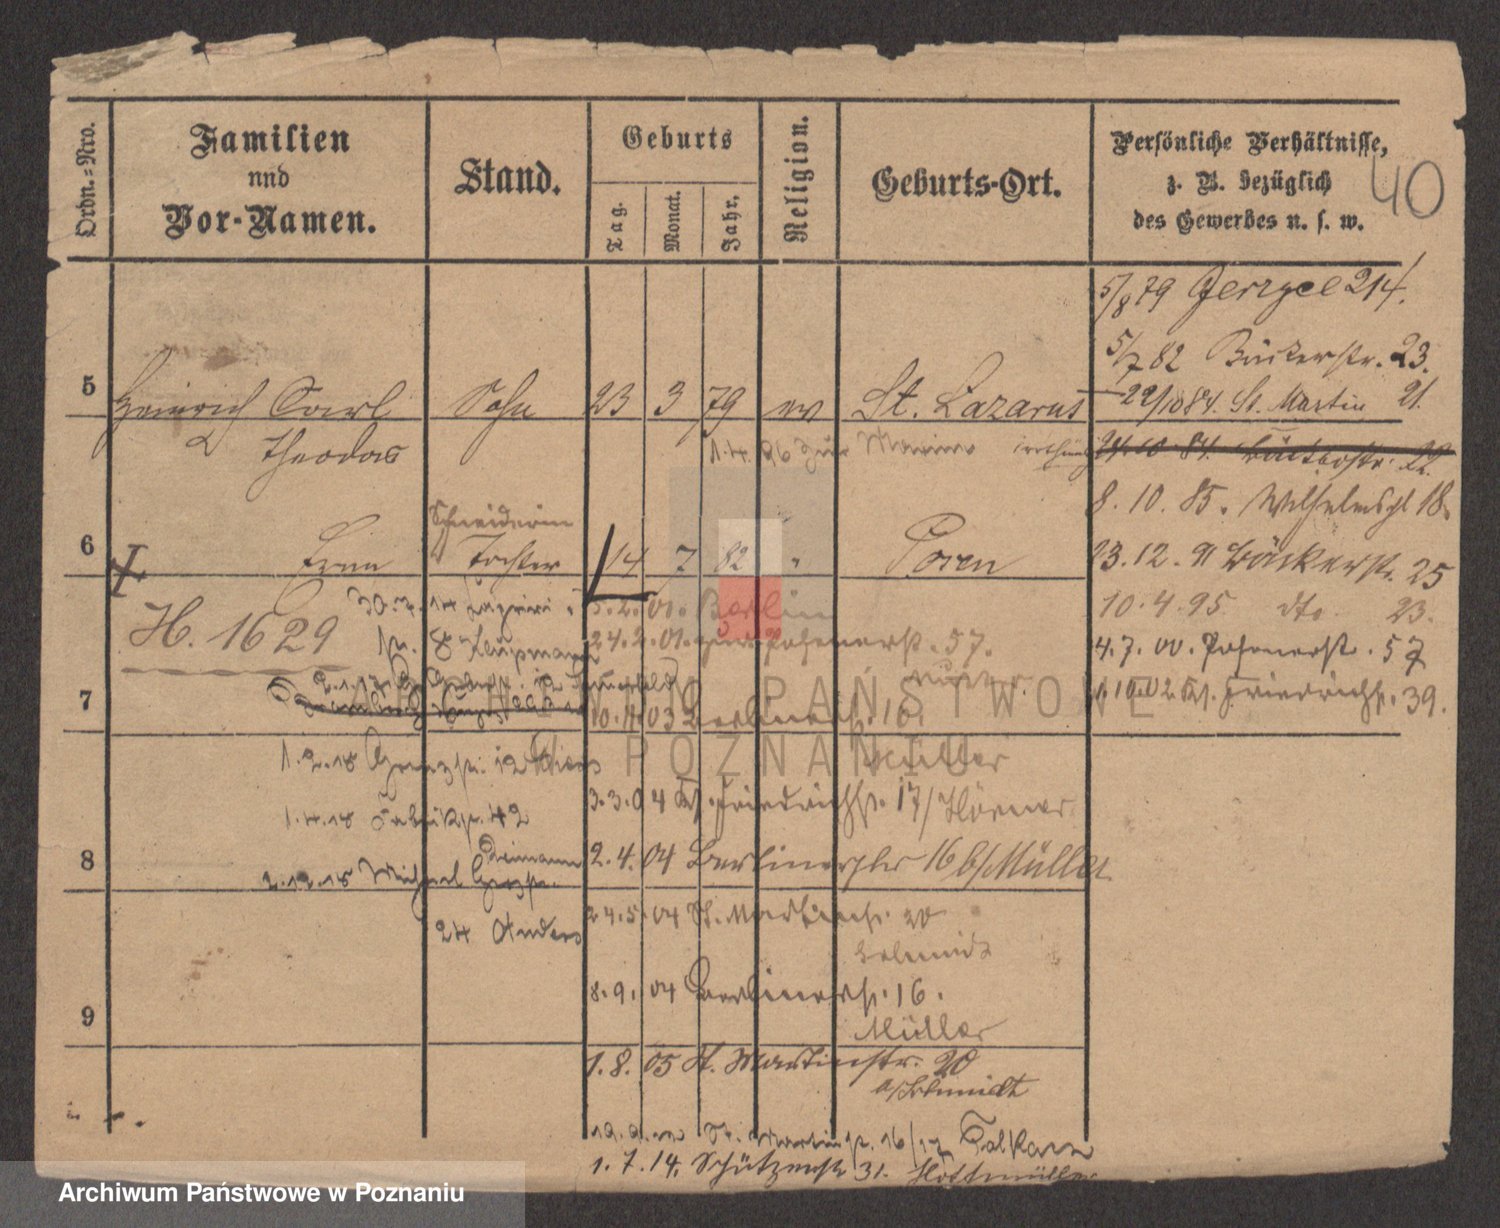 Ordn.-Nro.
Familien
und
Vor-Namen.
Stand.
Geburts
Tag.
Monat.
Jahr.
Religion.
Geburts-Ort.
Persönliche Verhältnisse,
z. B. bezüglich
des Gewerbes u. s. w.
40
5/8 79 Jerzyce 214.
5/7 82 Bäckerstr. 23.
5 Heinrich Carl Sohn 23 3 79 ev St. Lazarus
22/10 84. St. Martin 21.
Theodor
1.4.96 zur Marine
24.10.84. Bäckerstr. 22.
8.10.85. Wilhelmspl 18.
Schneiderin
6 Erna Tochter 14 7 82 " Posen
23.12.91 Bäckerstr. 25
5.2.01. Berlin
10.4.95 dto. 23.
H. 1629
24.2.01. zur. Posenerstr. 57.
4.7.00. Posenerstr. 57
7
10.11.03 Berlinerstr. 16.
Müller
1.10.02 Kl. Friedrichstr. 39.
1.2.18 Grenzstr. 12
3.3.04 Kl. Friedrichstr. 17/Hörner
1.4.18 Fabrikstr. 42
8
2.4.04 Berlinerstr 16 b/Müller
2.12.18
24 Anders
24.5.04 St. Martinstr. 20
Schmidt
8.9.04 Berlinerstr. 16.
Müller
9
1.8.05 St. Martinstr. 20
b/Schmidt
St. Martinstr. 16/17
1.7.14. Schützenstr 31.
ARCHIWUM PAŃSTWOWE
W POZNANIU
Archiwum Państwowe w Poznaniu